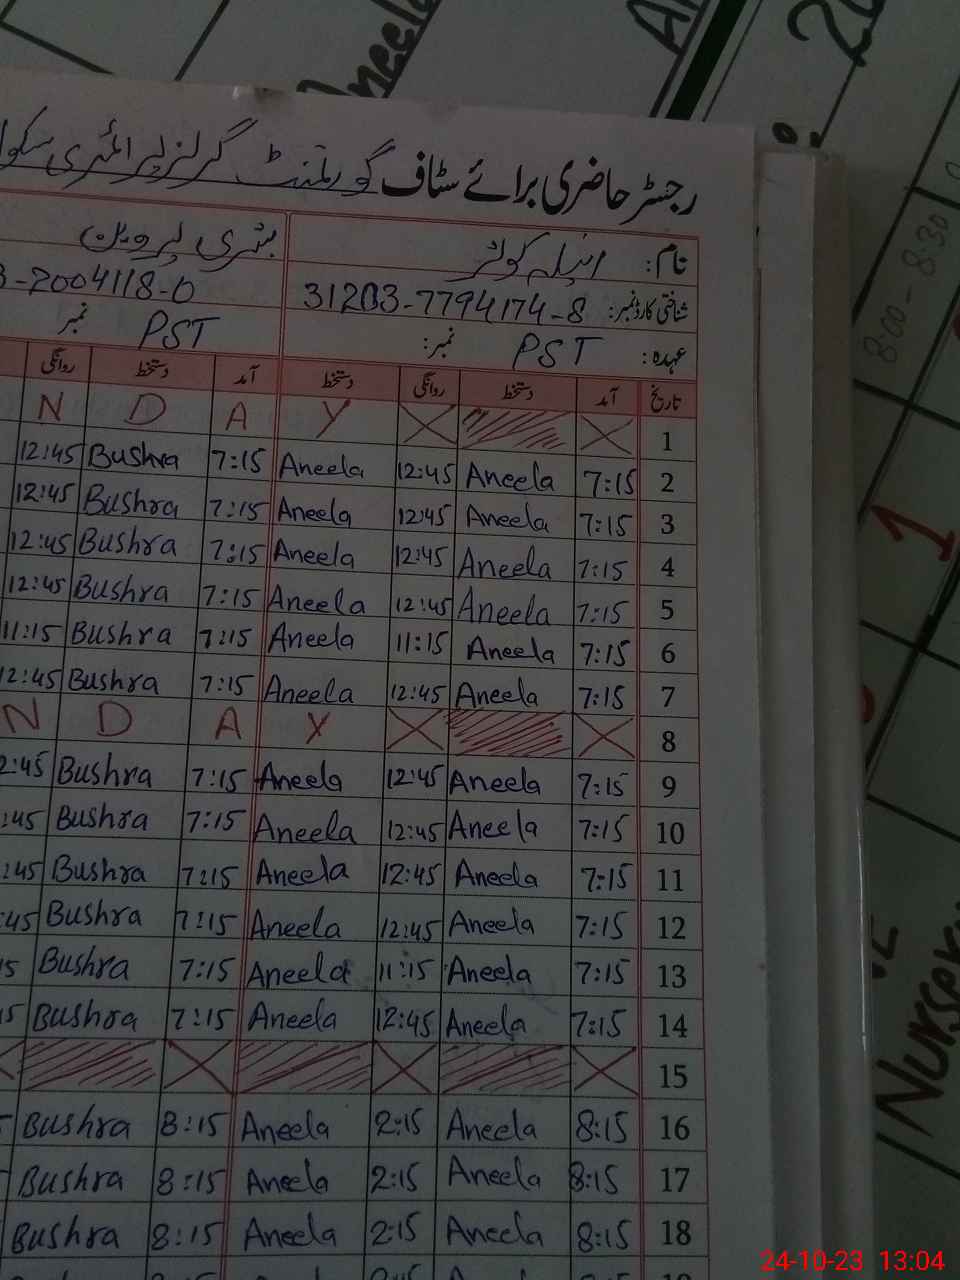 Aneela
رجسٹر حاضری برائے سٹاف گورنمنٹ گرلز پرائمری
نام: انیلہ کوثر بشری پروین
شناختی کارڈ نمبر: 31203-7794174-8 -2004118-0
عہدہ: PST نمبر: PST نمبر
تاریخ آمد دستخط روانگی دستخط آمد دستخط روانگی
1 Y A D N
2 7:15 Aneela 12:45 Aneela 7:15 Bushra 12:45
3 7:15 Aneela 12:45 Aneela 7:15 Bushra 12:45
4 7:15 Aneela 12:45 Aneela 7:15 Bushra 12:45
5 7:15 Aneela 12:45 Aneela 7:15 Bushra 12:45
6 7:15 Aneela 11:15 Aneela 7:15 Bushra 11:15
7 7:15 Aneela 12:45 Aneela 7:15 Bushra 12:45
8 Y A D N
9 7:15 Aneela 12:45 Aneela 7:15 Bushra 2:45
10 7:15 Aneela 12:45 Aneela 7:15 Bushra :45
11 7:15 Aneela 12:45 Aneela 7:15 Bushra :45
12 7:15 Aneela 12:45 Aneela 7:15 Bushra :45
13 7:15 Aneela 11:15 Aneela 7:15 Bushra 15
14 7:15 Aneela 12:45 Aneela 7:15 Bushra 5
15
16 8:15 Aneela 2:15 Aneela 8:15 Bushra
17 8:15 Aneela 2:15 Aneela 8:15 Bushra
18 8:15 Aneela 2:15 Aneela 8:15 Bushra
800-8:30
1
Nurser
24-10-23 13:04